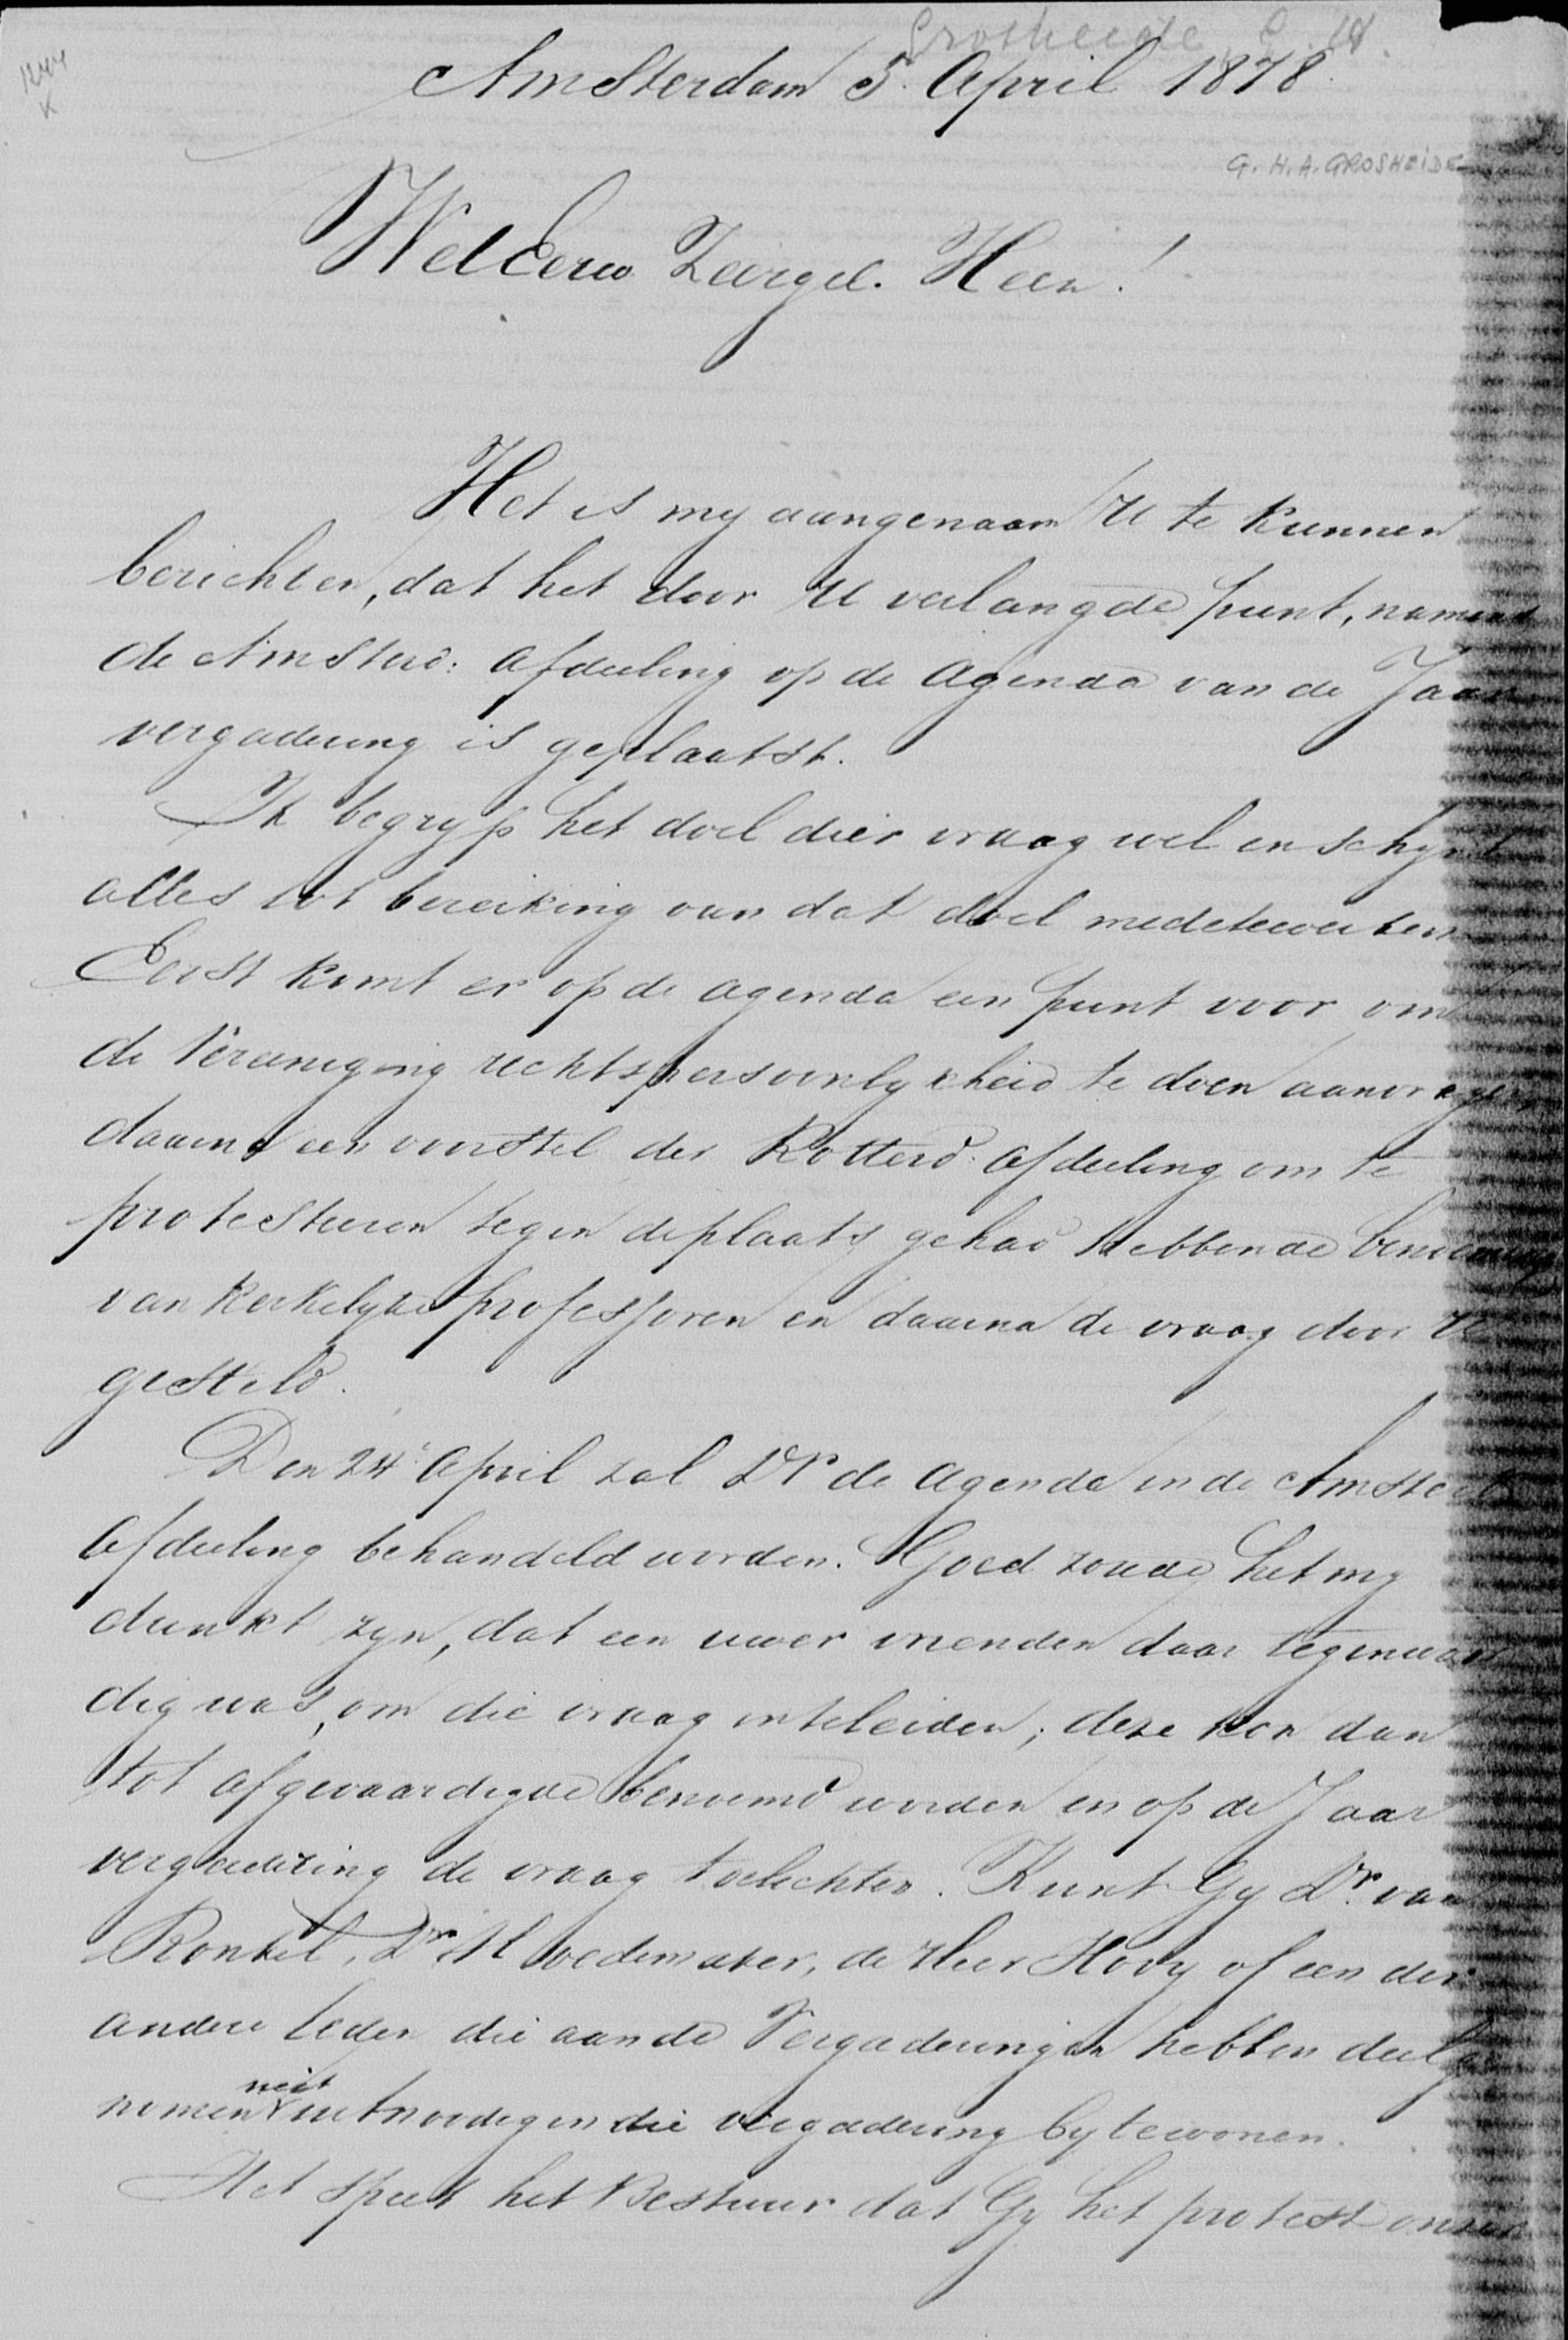 Grosheide, G. H.
1244
K
Amsterdam 5 April 1878.
G. H. A. GROSHEIDE
WelEerw Zeergel. Heer!
Het is my aangenaam U te kunnen
berichten, dat het door U verlangde punt, namens
de Amsterd: Afdeeling op de Agenda van de Jaar
vergadering is geplaatst.
Ik begryp het doel dier vraag wel en schynt
alles tot bereiking van dat doel medetewerken
Eerst komt er op de agenda een punt voor om
de Vereeniging rechtspersoonlykheid te doen aanvragen,
daarna een voorstel der Rotterd. Afdeeling om te
protesteeren tegen de plaats gehad hebbende benoeming
van kerkelyke professoren en daarna de vraag door U
gesteld.
Den 24 April zal DV de Agenda in de Amsterd
Afdeeling behandeld worden. Goed zoude het my
dunkt zyn, dat een uwer vrienden daar tegenwoor
dig was, om die vraag inteleiden; deze kon dan
tot afgevaardigde benoemd worden en op de Jaar
vergadering de vraag toelichten. Kunt Gy Dr. van
Ronkel, Dr. H Hoedemaker, de Heer Hovy of een der
andere leden die aan de Vergaderingen hebben deelge
nomen niet uitnoodigen die vergadering bytewonen.
Het speet het Bestuur dat Gy het protest onzer